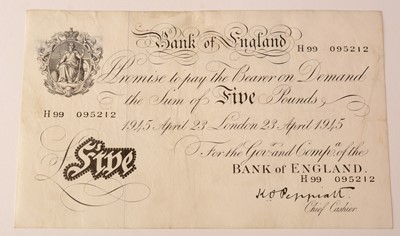 Bank of England
H99 095212
I Promise to pay the Bearer on Demand
the Sum of Five Pounds
H99 095212
1945 April 23 London 23 April 1945
For the Govr. and Compa. of the
BANK OF ENGLAND.
H99 095212
Five
K O Peppiatt
Chief Cashier.